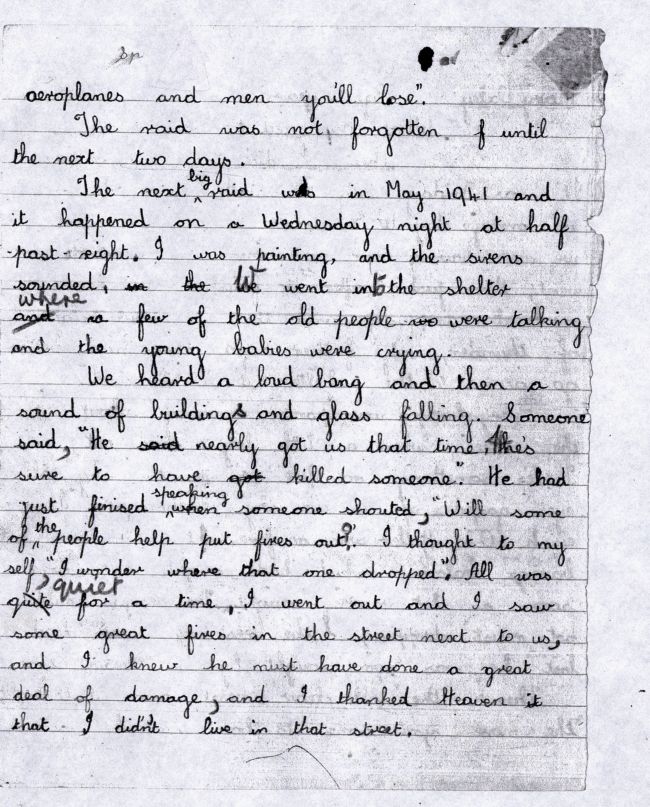 sp
aeroplanes and men you'll lose".
The raid was not, forgotten. f until
the next two days.
The next big raid was in May 1941 and
it happened on a Wednesday night at half
-past eight. I was painting, and the sirens
sounded, in the We went into the shelter
where
and a few of the old people wo were talking
and the young babies were crying.
We heard a loud bang and then a
sound of buildings and glass falling. Someone
said, "He said nearly got us that time, he's
sure to have got killed someone." He had
just finised speaking when someone shouted, "Will some
of the people help put fires out?". I thought to my
self, "I wonder where that one dropped". All was
quiet
quite for a time, I went out and I saw
some great fires in the street next to us,
and I knew he must have done a great
deal of damage, and I thanked Heaven it
that I didn't live in that street.